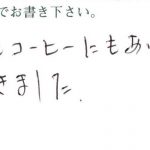 でお書き下さい。
コーヒーにもあ
きました